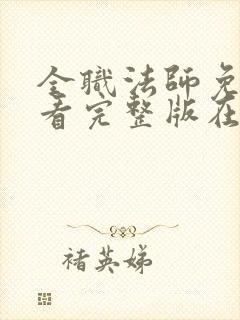 全職法師免
看完整版在
褚英娣